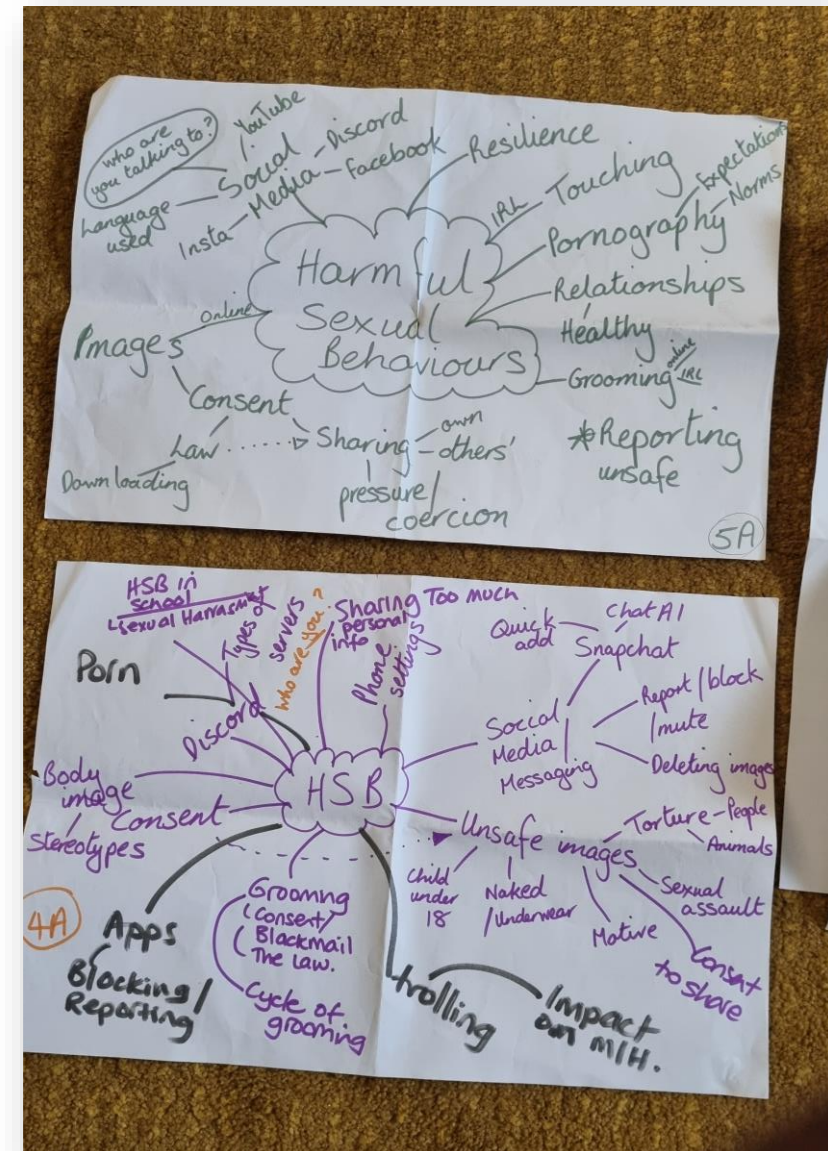 who are
you talking to?
YouTube
Social
Media
Discord
Facebook
Insta
Language
used
Resilience
IRL
Touching
Pornography
Expectations
Norms
Relationships
Healthy
Grooming
online
IRL
Harmful
Sexual
Behaviours
Images
Online
Consent
Law
Downloading
Sharing
own
others'
pressure/
coercion
*Reporting
unsafe
5A
HSB in
school
Sexual Harrasment
Types of
servers
who are you?
Sharing Too much
personal
info
Phone
settings
Porn
Discord
HSB
Quick
add
Chat AI
Snapchat
Social
Media
Messaging
Report/block
/mute
Deleting images
Body
image
Stereotypes
Consent
Unsafe images
Torture - People
Animals
Sexual
assault
Child
under
18
Naked
/Underwear
Motive
Consent
to share
4A
Apps
Blocking/
Reporting
Groomng
Consent/
Blackmail
The Law.
Cycle of
grooming
trolling
Impact
on M/H.